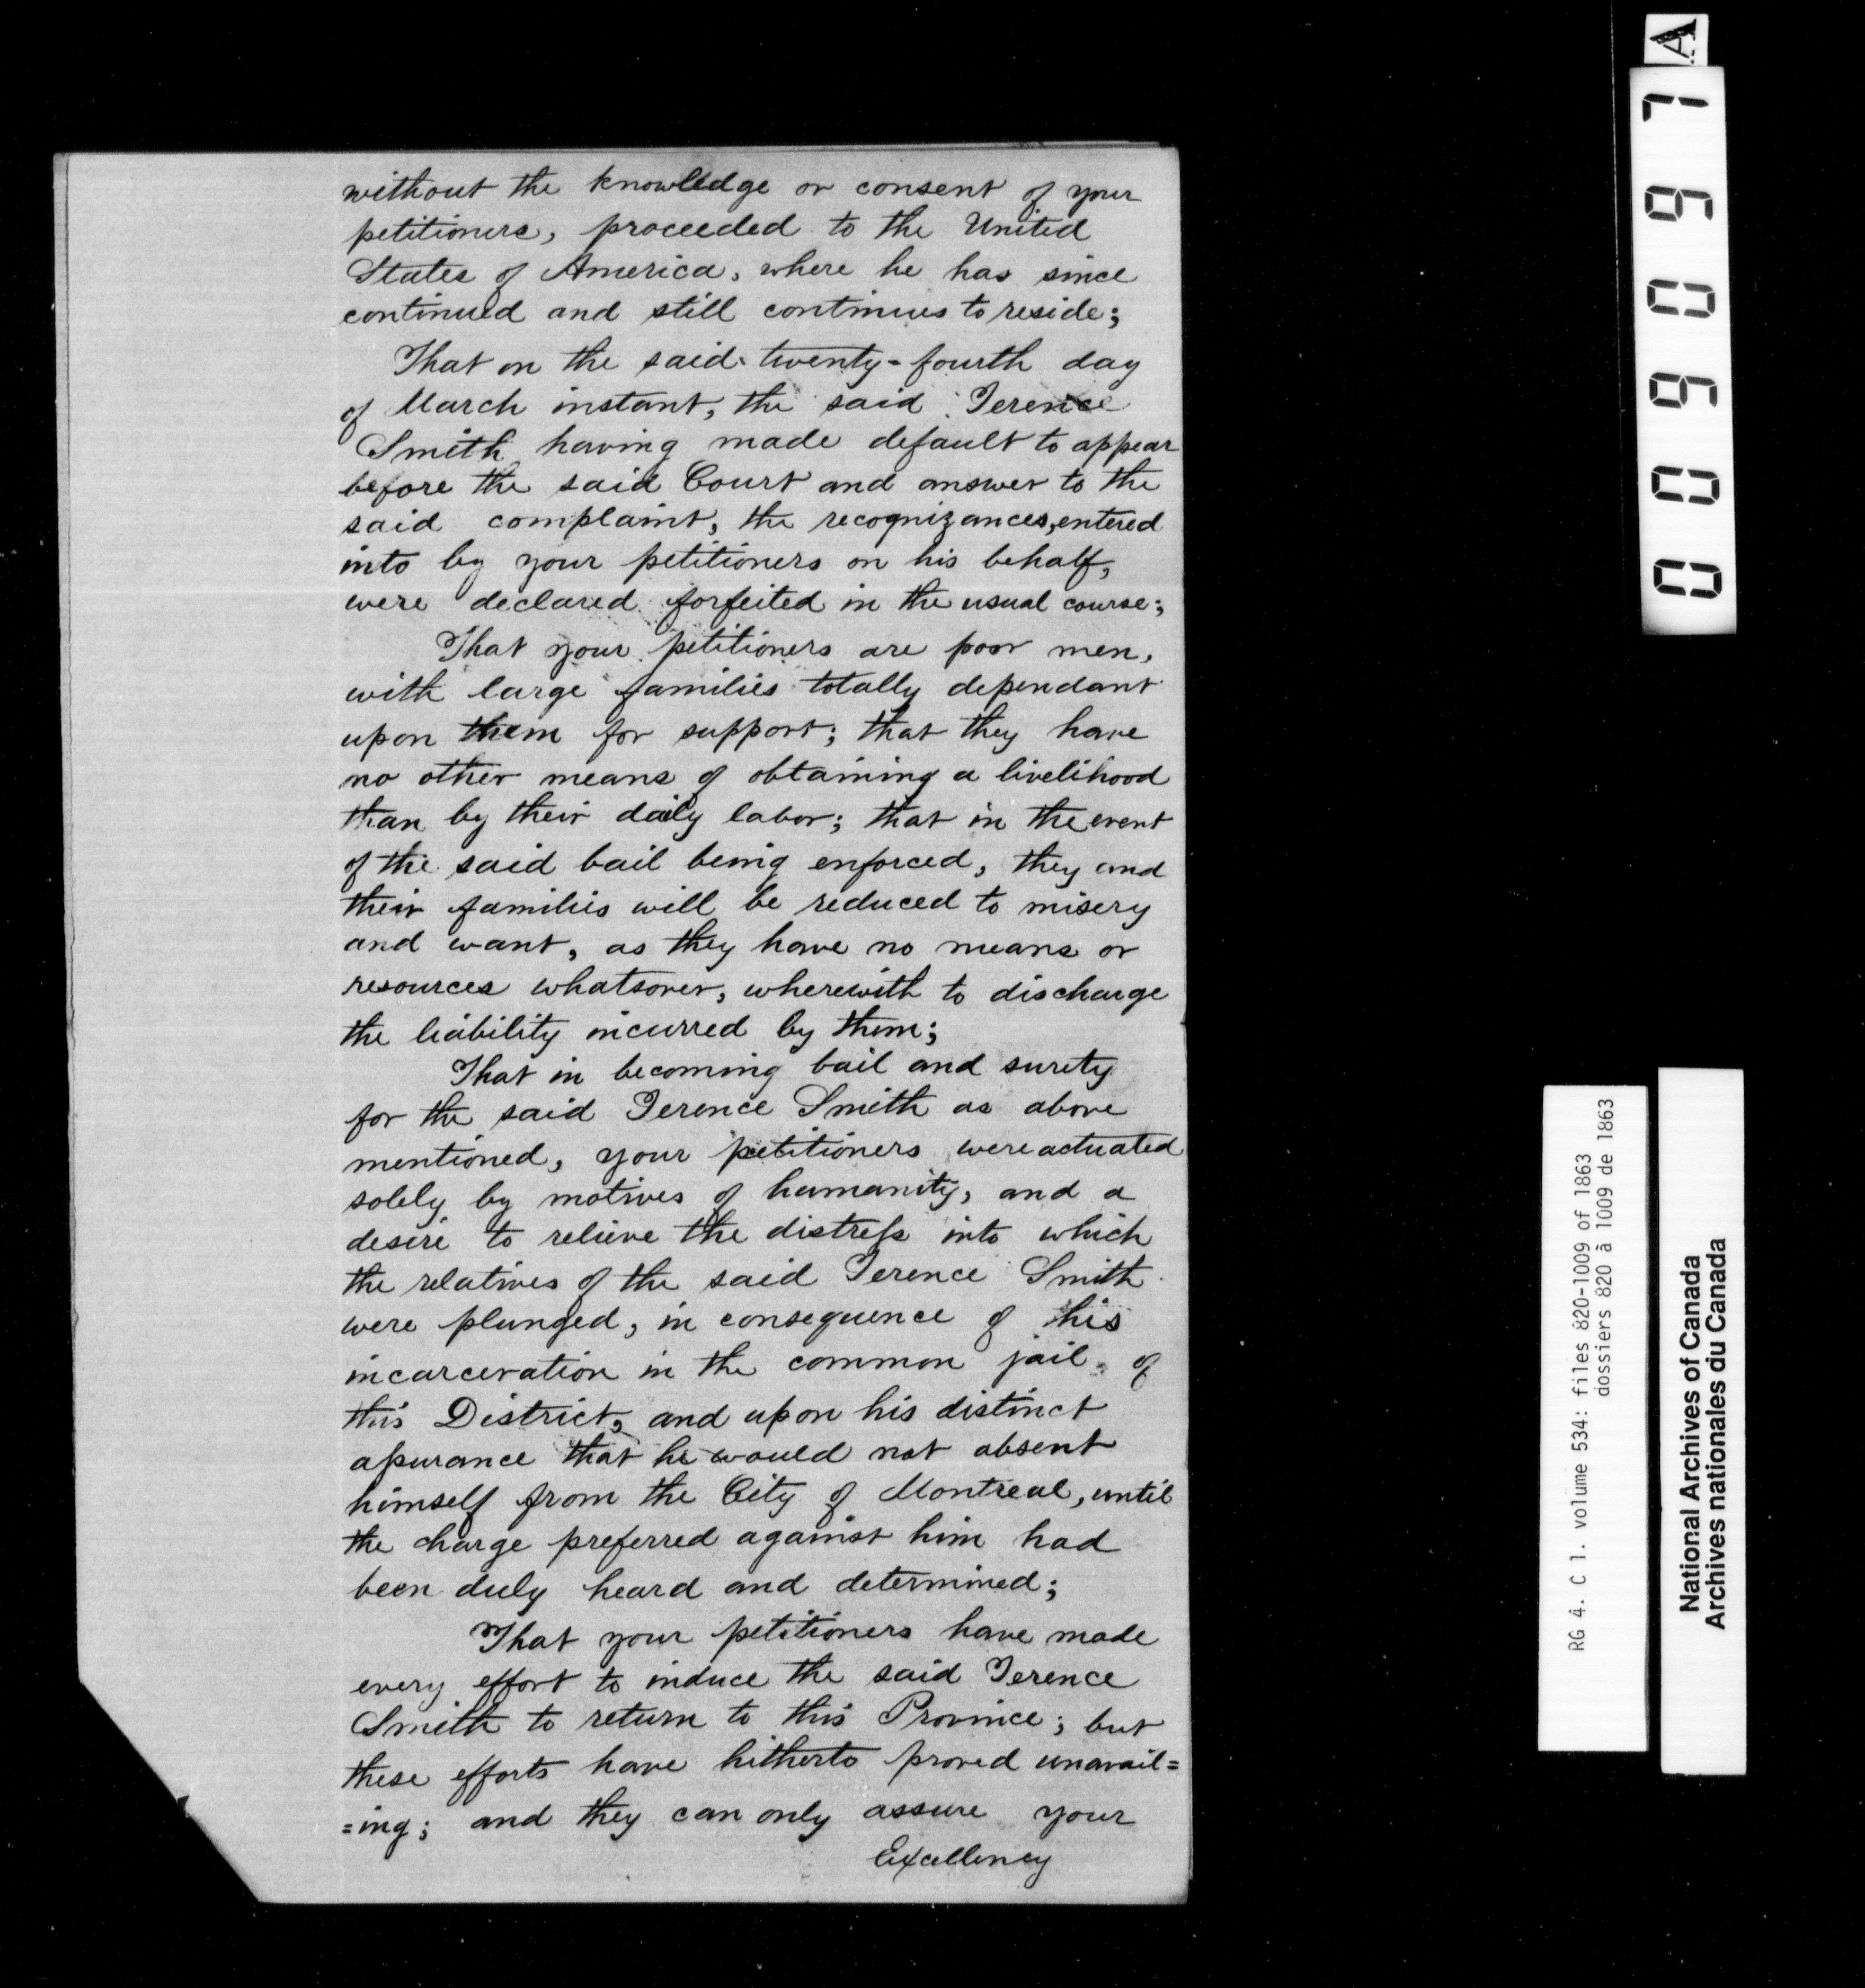 without the knowledge or consent of your
petitioners, proceeded to the United
States of America, where he has since
continued and still continues to reside;
That on the said twenty-fourth day
of March instant, the said Terence
Smith having made default to appear
before the said Court and answer to the
said complaint, the recognizances, entered
into by your petitioners on his behalf,
were declared forfeited in the usual course;
That your petitioners are poor men,
with large families totally dependant
upon them for support; that they have
no other means of obtaining a livelihood
than by their daily labor; that in the event
of the said bail being enforced, they and
their families will be reduced to misery
and want, as they have no means or
resources whatsoever, wherewith to discharge
the liability incurred by them;
That in becoming bail and surety
for the said Terence Smith as above
mentioned, your petitioners were actuated
solely by motives of humanity, and a
desire to relieve the distreſs into which
the relatives of the said Terence Smith
were plunged, in consequence of his
incarceration in the common jail of
this District, and upon his distinct
aſsurance that he would not absent
himself from the City of Montreal, until
the charge preferred against him had
been duly heard and determined;
That your petitioners have made
every effort to induce the said Terence
Smith to return to this Province; but
these efforts have hitherto proved unavail=
=ing; and they can only assure your
Excellency
009097 A
RG 4. C 1. volume 534: files 820-1009 of 1863
dossiers 820 à 1009 de 1863
National Archives of Canada
Archives nationales du Canada